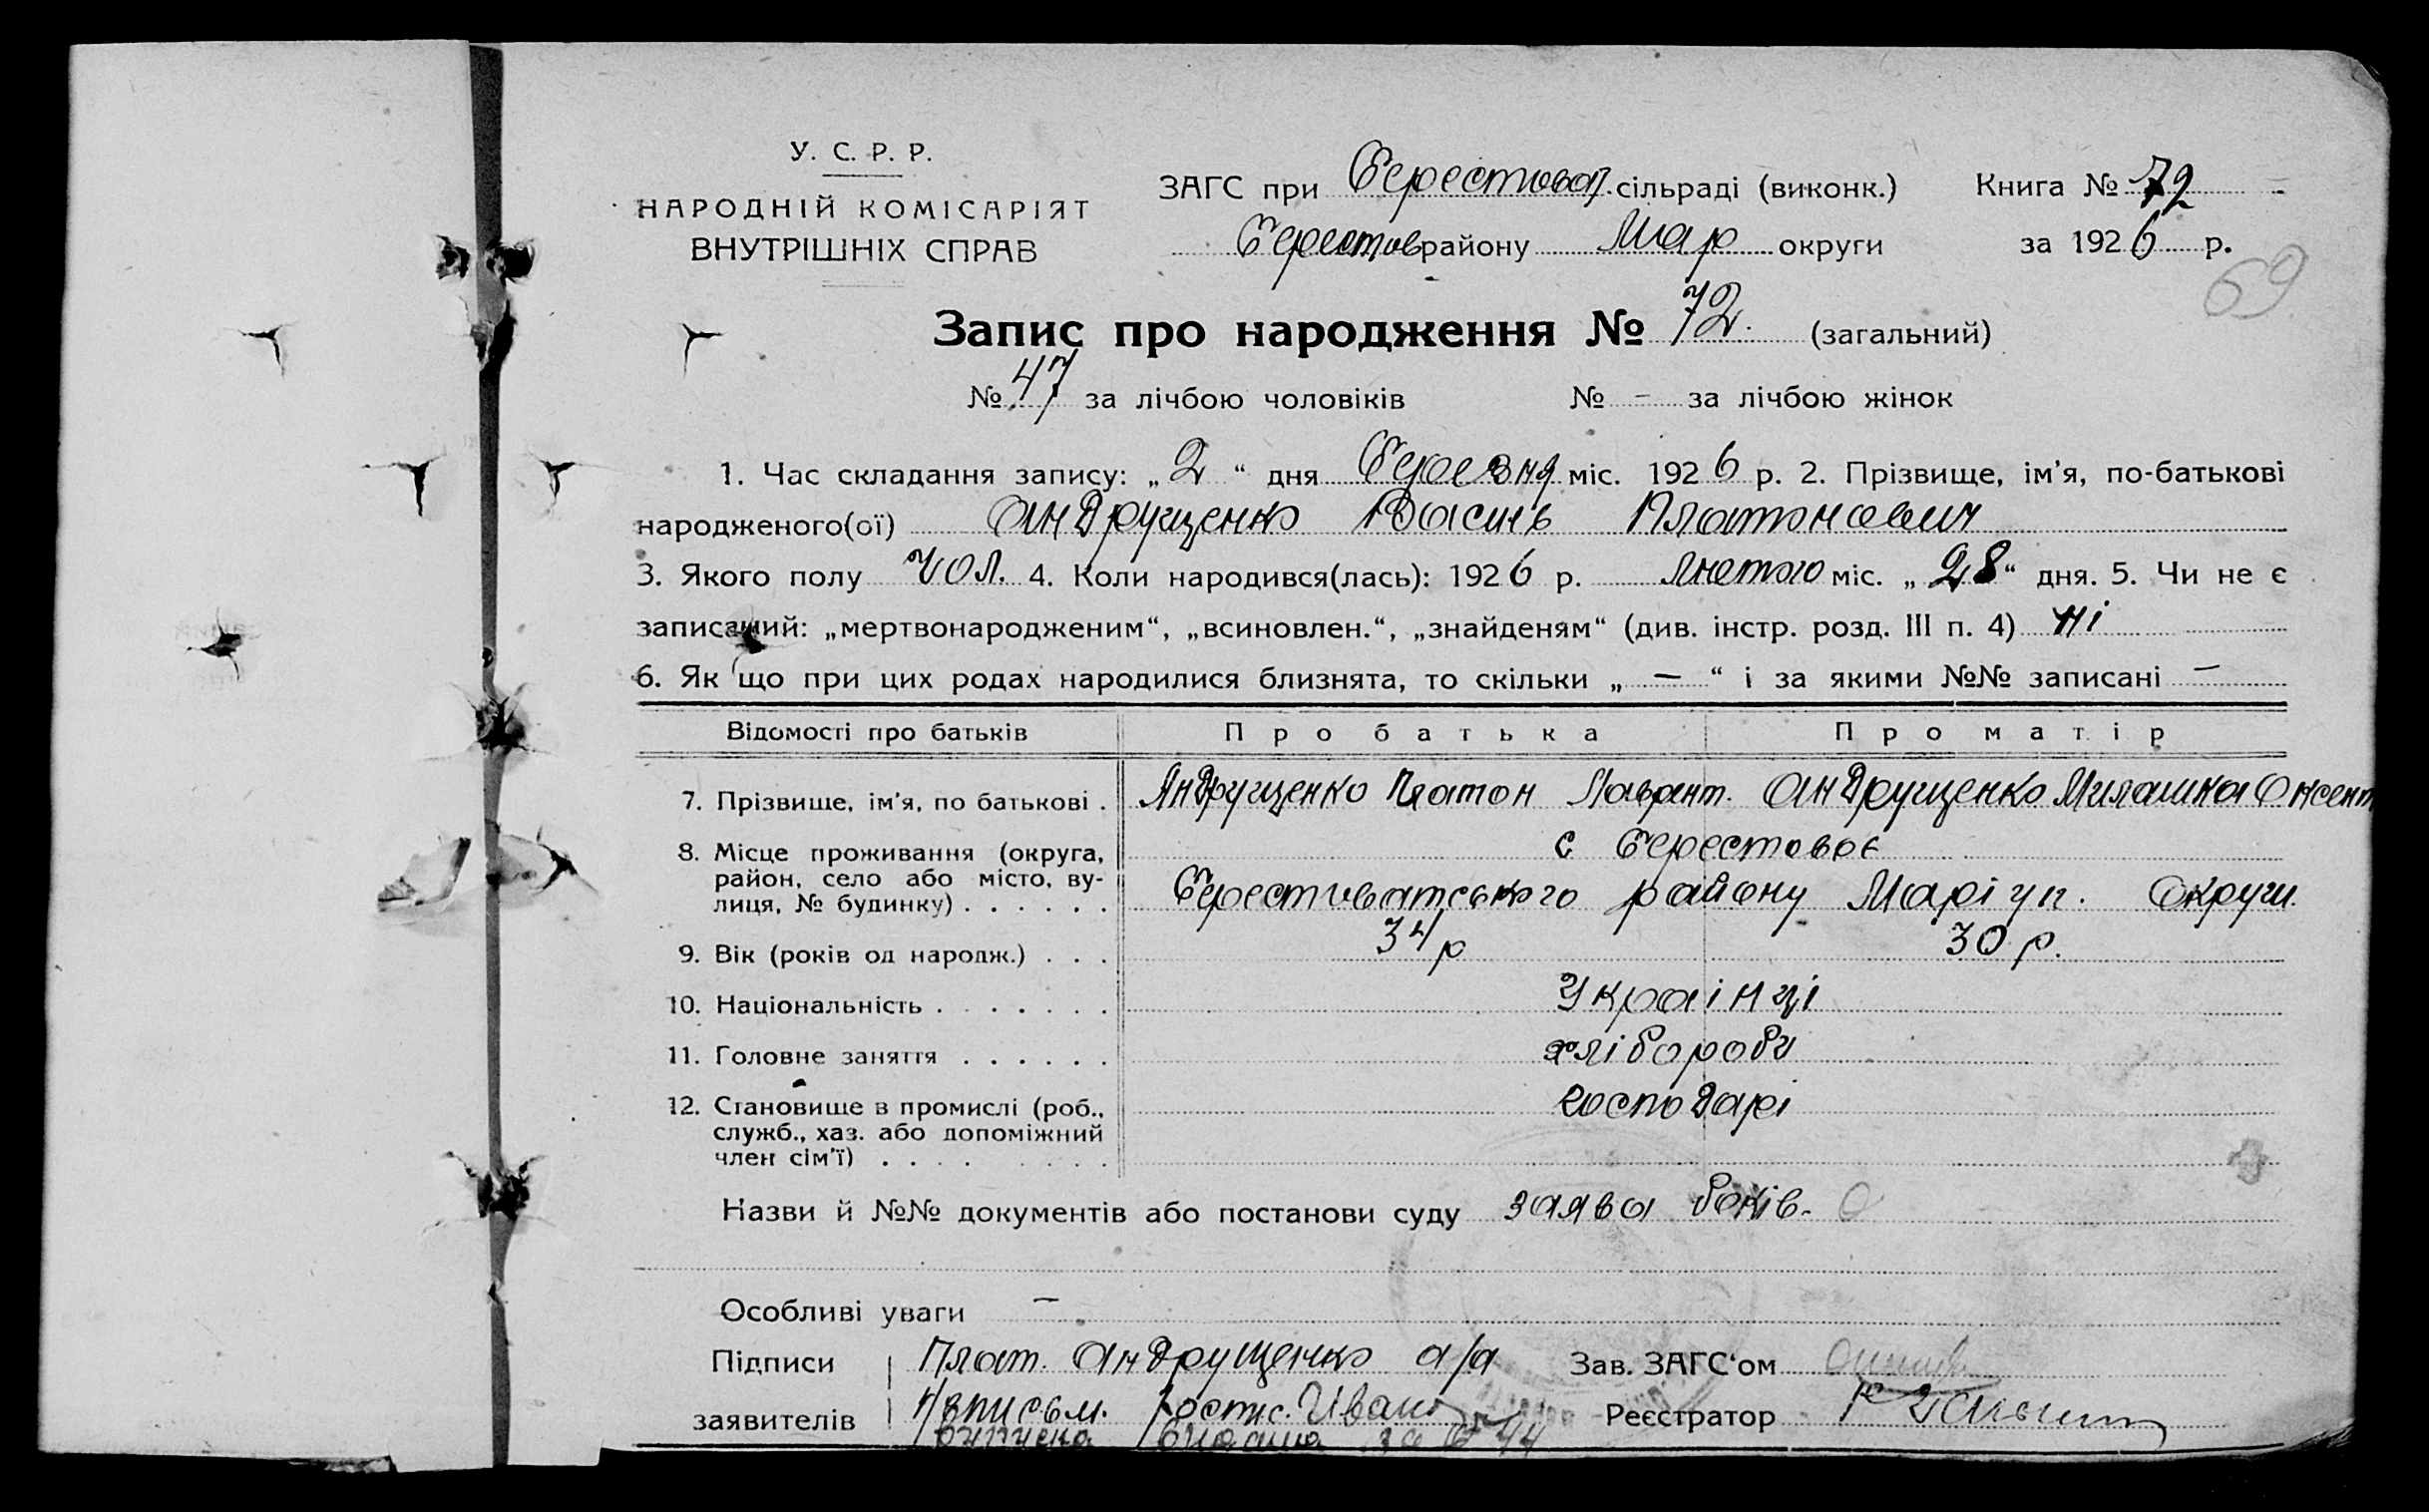 У. С. Р. Р.
НАРОДНІЙ КОМІСАРІЯТ
ВНУТРІШНІХ СПРАВ
ЗАГС при Берестовар. сільраді (виконк.) Книга № 72
Берестов району Мар округи за 1926 р.
69
Запис про народження № 72. (загальний)
№ 47 за лічбою чоловіків № - за лічбою жінок
1. Час складання запису: „2“ дня Березня міс. 1926 р. 2. Прізвище, ім'я, по-батькові
народженого(ої) Андрущенко Василь Платонович
3. Якого полу чол. 4. Коли народився(лась): 1926 р. лютого міс. „28“ дня. 5. Чи не є
записаний: „мертвонародженим“, „всиновлен.“, „знайденям“ (див. інстр. розд. III п. 4) ні
6. Як що при цих родах народилися близнята, то скільки „ — “ і за якими №№ записані —
Відомості про батьків Про батька Про матір
7. Прізвище, ім'я, по батькові . Андрущенко Платон Лаврент. Андрущенко Милашка
8. Місце проживання (округа, район, село або місто, вулиця, № будинку) . . . . . . с Берестовоє
Берестоватського району Маріуп. Округи.
9. Вік (років од народж.) . . . 34 р 30 р.
10. Національність . . . . . . . Українці
11. Головне заняття . . . . . . хлібороби
12. Становище в промислі (роб., служб., хаз. або допоміжний член сім'ї) . . . . господарі
Назви й №№ документів або постанови суду заява боків.
Особливі уваги —
Підписи Плат. Андрущенко а/а Зав. ЗАГС'ом
заявителів Реєстратор